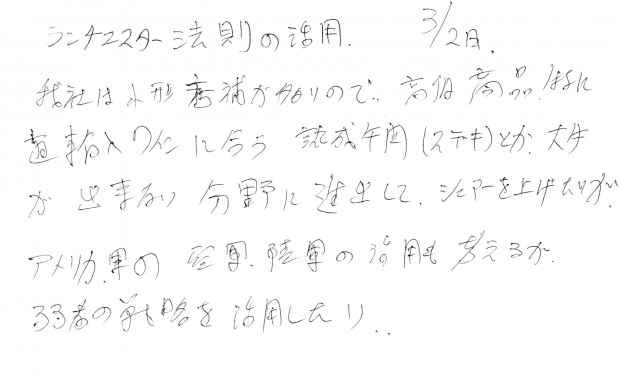 ランチェスター法則の活用. 3/2日.
我社は小形店舗が多いので、高価商品、特に
直輸入ワインに合う 熟成牛肉(ステキ)とか、大手
が 出来ない 分野に進出して、シェアーを上げたいが、
アメリカ軍の 空軍、陸軍の活用も考えるが、
弱者の戦略を活用したい..